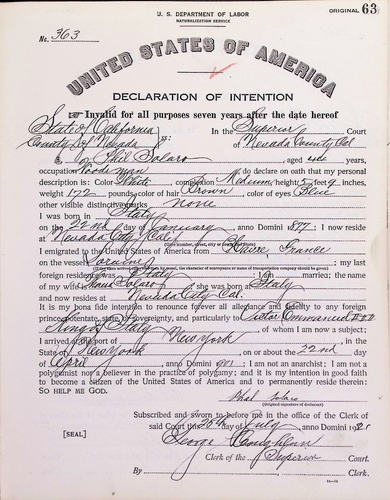 U. S. DEPARTMENT OF LABOR
NATURALIZATION SERVICE
ORIGINAL 63
No. 363
UNITED STATES OF AMERICA
DECLARATION OF INTENTION
Invalid for all purposes seven years after the date hereof
State of California
County of Nevada ss: In the Superior Court of Nevada County Cal
I, Phil Solaro, aged years,
occupation Woodsman, do declare on oath that my personal
description is: Color White, complexion Medium, height 5 feet 9 inches,
weight 172 pounds, color of hair Brown, color of eyes Blue
other visible distinctive marks none
I was born in Italy
on the 22nd day of January, anno Domini 1877; I now reside
at Nevada City Calif
(Give number, street, city or town, and State.)
I emigrated to the United States of America from Havre, France
on the vessel Lorraine; my last
(If the alien arrived otherwise than by vessel, the character of conveyance or name of transportation company should be given)
foreign residence was Italy; I am married; the name
of my wife is Mary Solaro; she was born at Italy
and now resides at Nevada City Cal.
It is my bona fide intention to renounce forever all allegiance and fidelity to any foreign
prince, potentate, state, or sovereignty, and particularly to Victor Emmanuel III
King of Italy, of whom I am now a subject;
I arrived at the port of New York, in the
State of New York, on or about the 22nd day
of April, anno Domini 1901; I am not an anarchist; I am not a
polygamist nor a believer in the practice of polygamy; and it is my intention in good faith
to become a citizen of the United States of America and to permanently reside therein:
SO HELP ME GOD.
Phil Solaro
(Original signature of declarant)
Subscribed and sworn to before me in the office of the Clerk of
said Court this 25th day of July, anno Domini 1921
[SEAL]
George Coughlan
Clerk of the Superior Court.
By , Clerk.